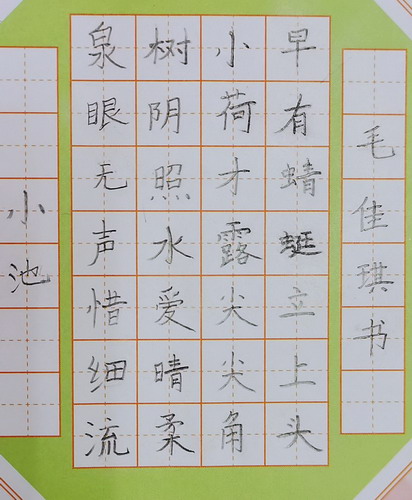 小池
泉眼无声惜细流
树阴照水爱晴柔
小荷才露尖尖角
早有蜻蜓立上头
毛佳琪书